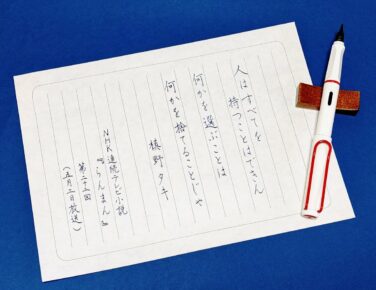 人はすべてを
持つことはできん
何かを選ぶことは
何かを捨てることじゃ
槙野タキ
NHK連続テレビ小説
「らんまん」
第二十二回
(五月二日放送)